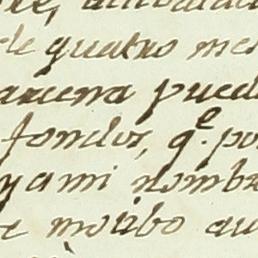 de quatro mes
arcena pued
fondos, q.e po
y a mi nombr
motibo qu